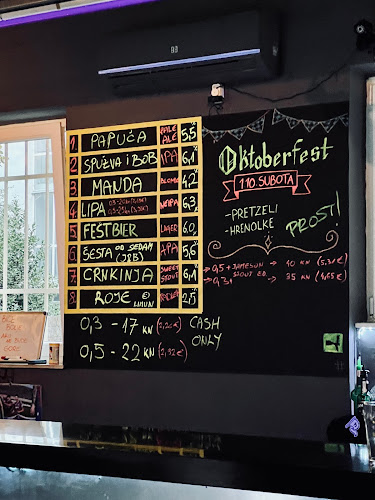 1. PAPUČA PALE ALE 5,5
2. SPUŽVA I BOB IPA 6,1
3. MANDA BLONDE 4,2
4. LIPA NEIPA
5. FESTBIER LAGER 6,0
6. ŠESTA OD SEDAM (JRB) APA 5,6
7. CRNKINJA SWEET STOUT 6,4
8. ROJE LIMUN RADLER 2,5
0,3 - 17 KN (2,26€) CASH
0,5 - 22 KN (2,92€) ONLY
Oktoberfest
1.10. SUBOTA
- PRETZELI
- HRENOLKE
PROST!
0,5 + JAMESON 40 KN
0,3 + STOUT ED 35 KN (4,65€)